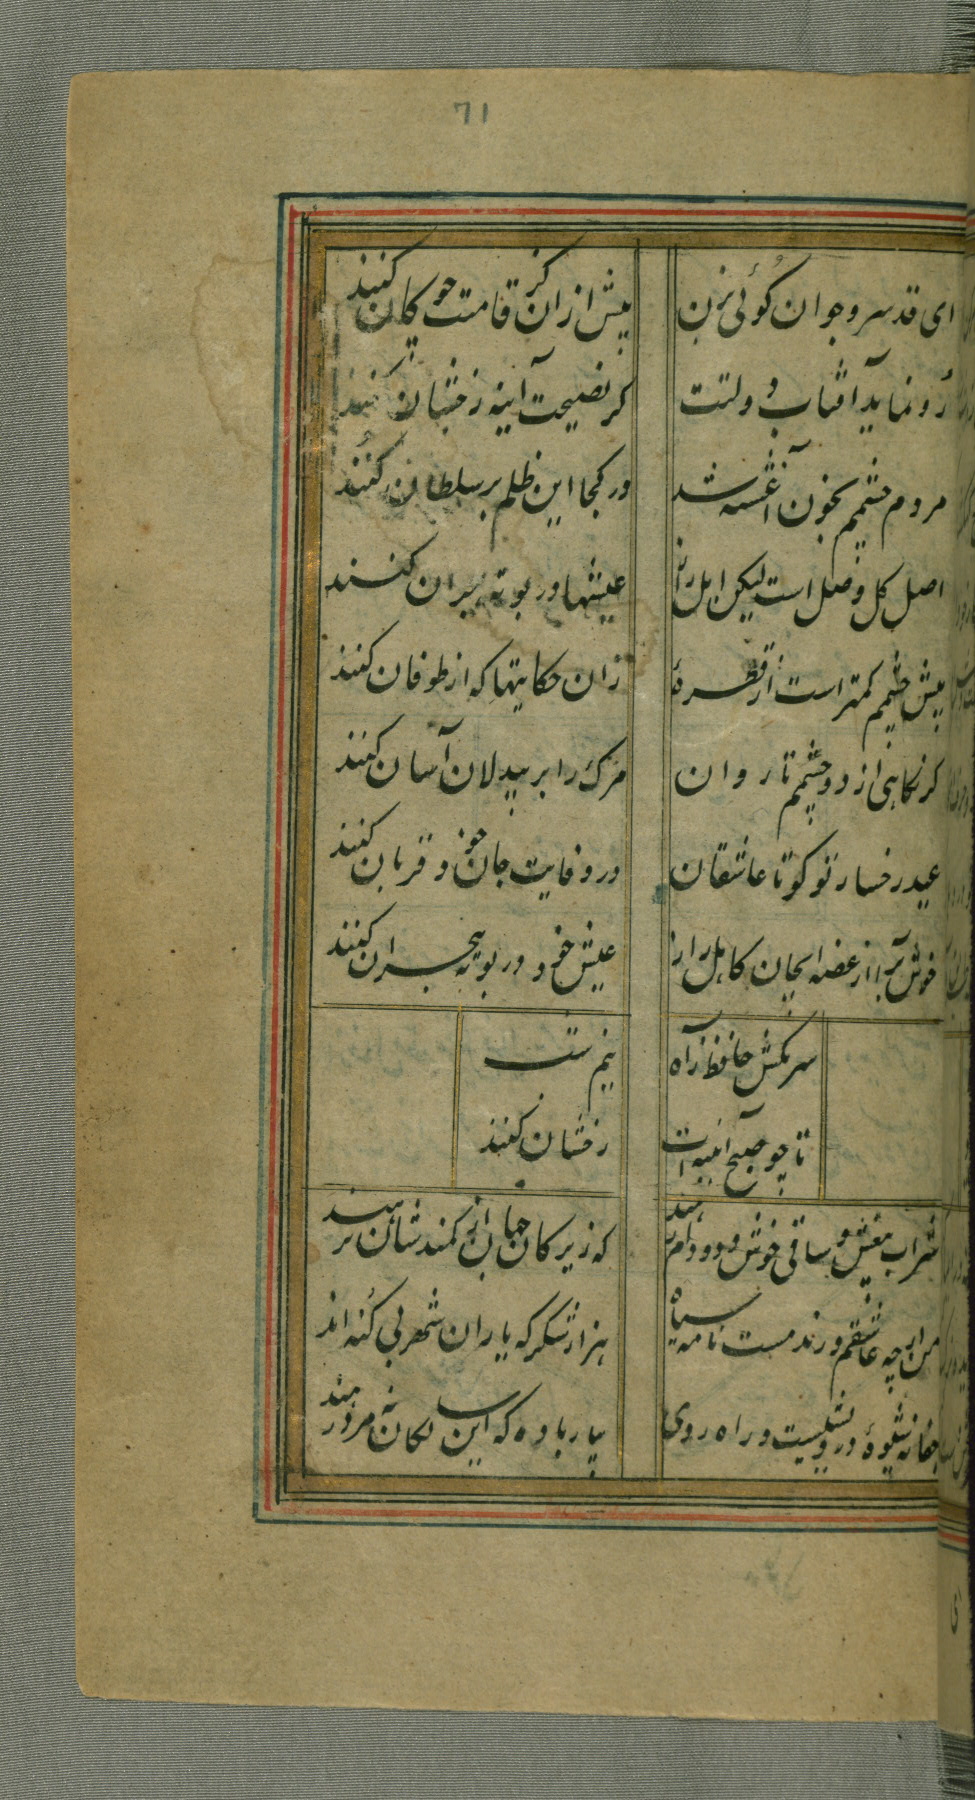 71
ای قد سرو جوان گوئی بزن
پیش ازان کز قامت چوگان کنند
رو نماید آفتاب دولتت
کر نصیحت آینه رخشان کنند
مردم چشمم بخون آغشته شد
در کجا این ظلم بر سلطان کنند
اصل کل وصل است لیکن اهل راز
عیشها در بوته هجران کنند
پیش چشمم کمتر است از قطرهٔ
زان حکایتها که از طوفان کنند
کر نگاهی از دو چشمم تا روان
مرک را بر بیدلان آسان کنند
عید رخسار تو کو تا عاشقان
در وفایت جان خود قربان کنند
خوش برا از غصه ایجان کاهل راز
عیش خود در بوته هجران کنند
سر مکش حافظ ز آه
نیم شب
تا چو صبح آینه ات
رخشان کنند
شراب بیغش و ساقی خوش دو دام رهند
که زیرکان جهان از کمندشان نرهند
من ارچه عاشقم و رند مست نامه سیاه
هزار شکر که یاران شهر بی کنه اند
جفا نه شیوهٔ درویشیست و راه روی
بیار باده که این سالکان نه مرد رهند